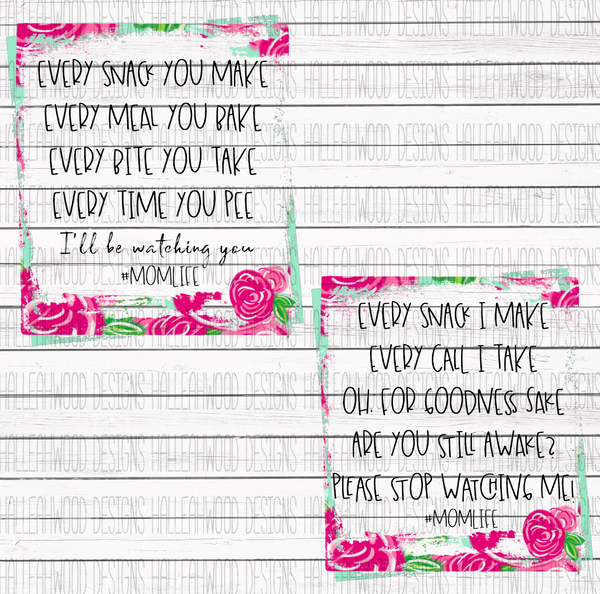 EVERY SNACK YOU MAKE
EVERY MEAL YOU BAKE
EVERY BITE YOU TAKE
EVERY TIME YOU PEE
I'll be watching you
#MOMLIFE
EVERY SNACK I MAKE
EVERY CALL I TAKE
OH, FOR GOODNESS SAKE
ARE YOU STILL AWAKE?
PLEASE STOP WATCHING ME!
#MOMLIFE
HALLEAHWOOD DESIGNS